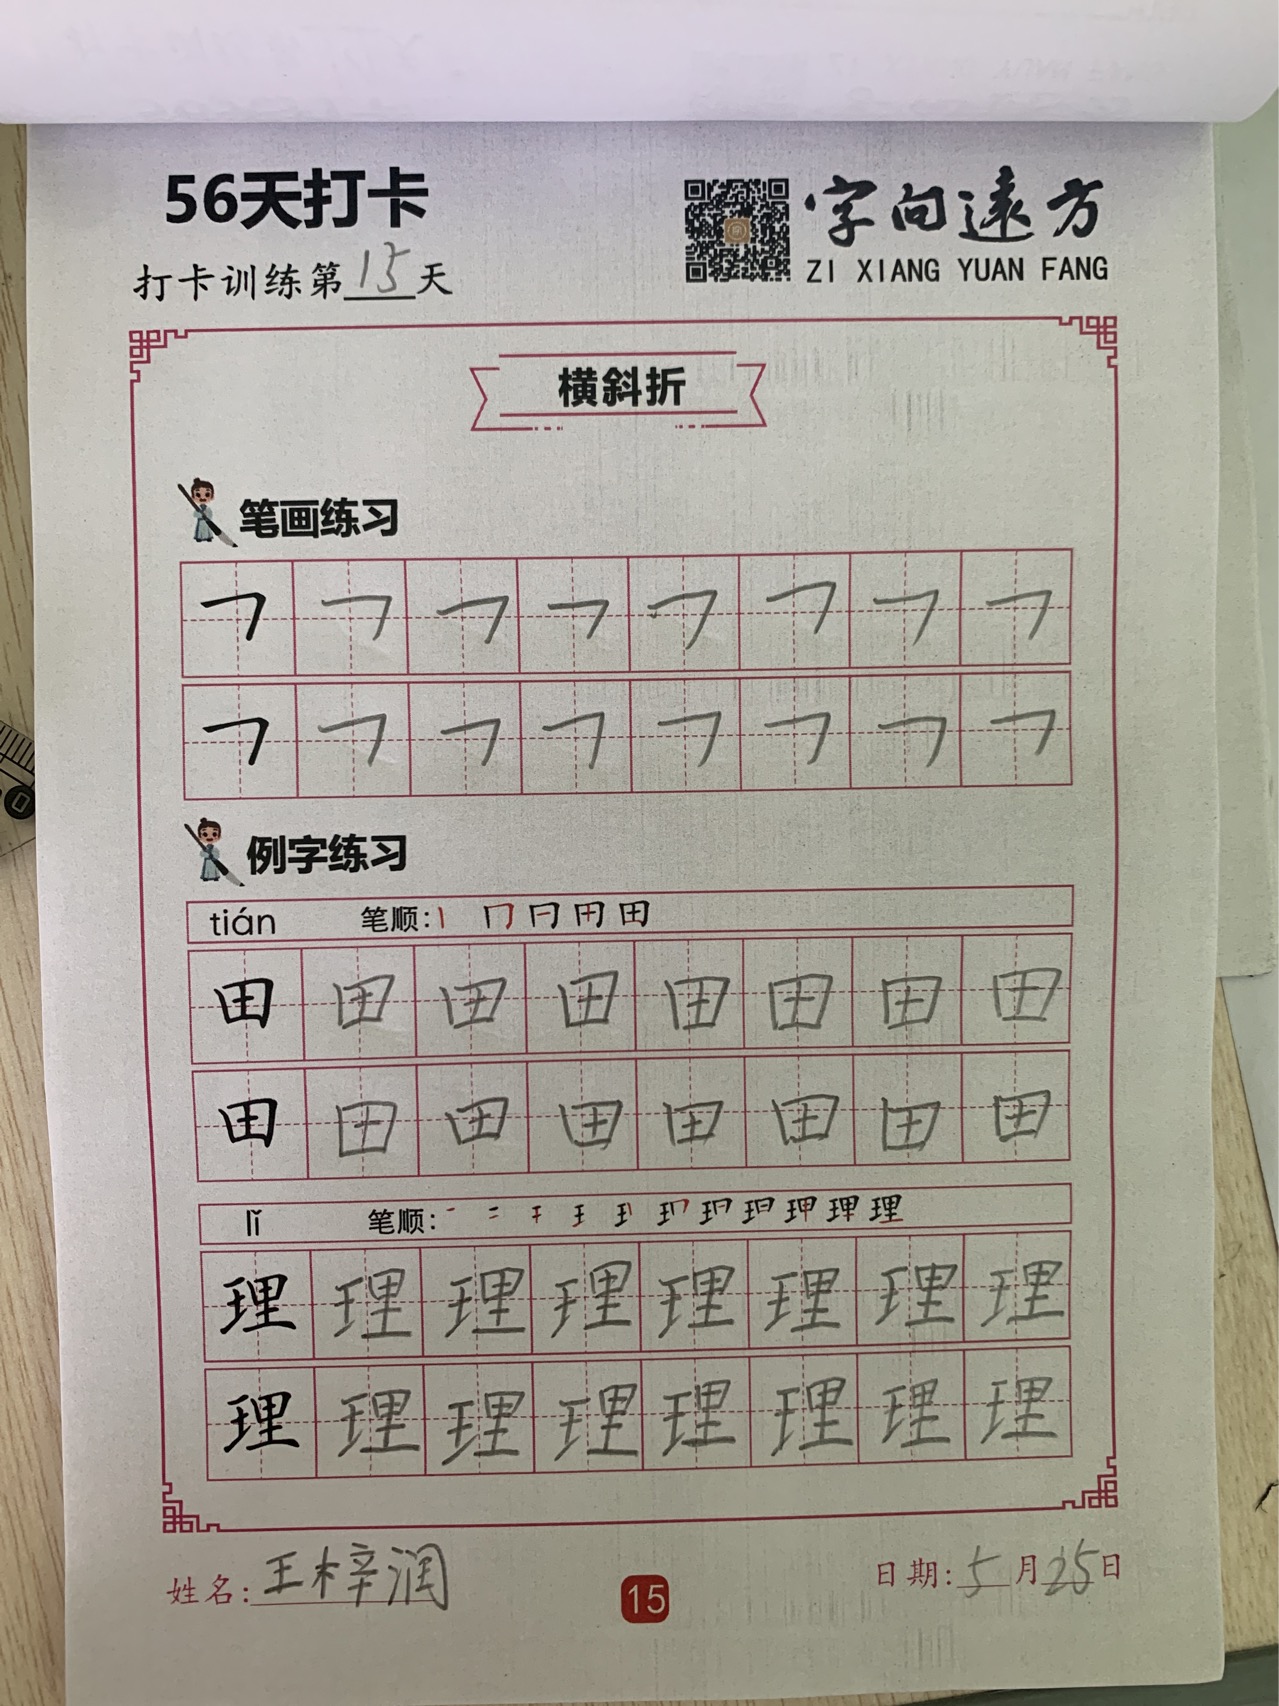 56天打卡
字向远方
打卡训练第15天
ZI XIANG YUAN FANG
横斜折
笔画练习
例字练习
tián 笔顺: 丨 冂 日 田 田
田 田 田 田 田 田 田 田
田 田 田 田 田 田 田 田
lǐ 笔顺: 理
理 理 理 理 理 理 理 理
理 理 理 理 理 理 理 理
姓名: 王梓润
15
日期: 5月25日